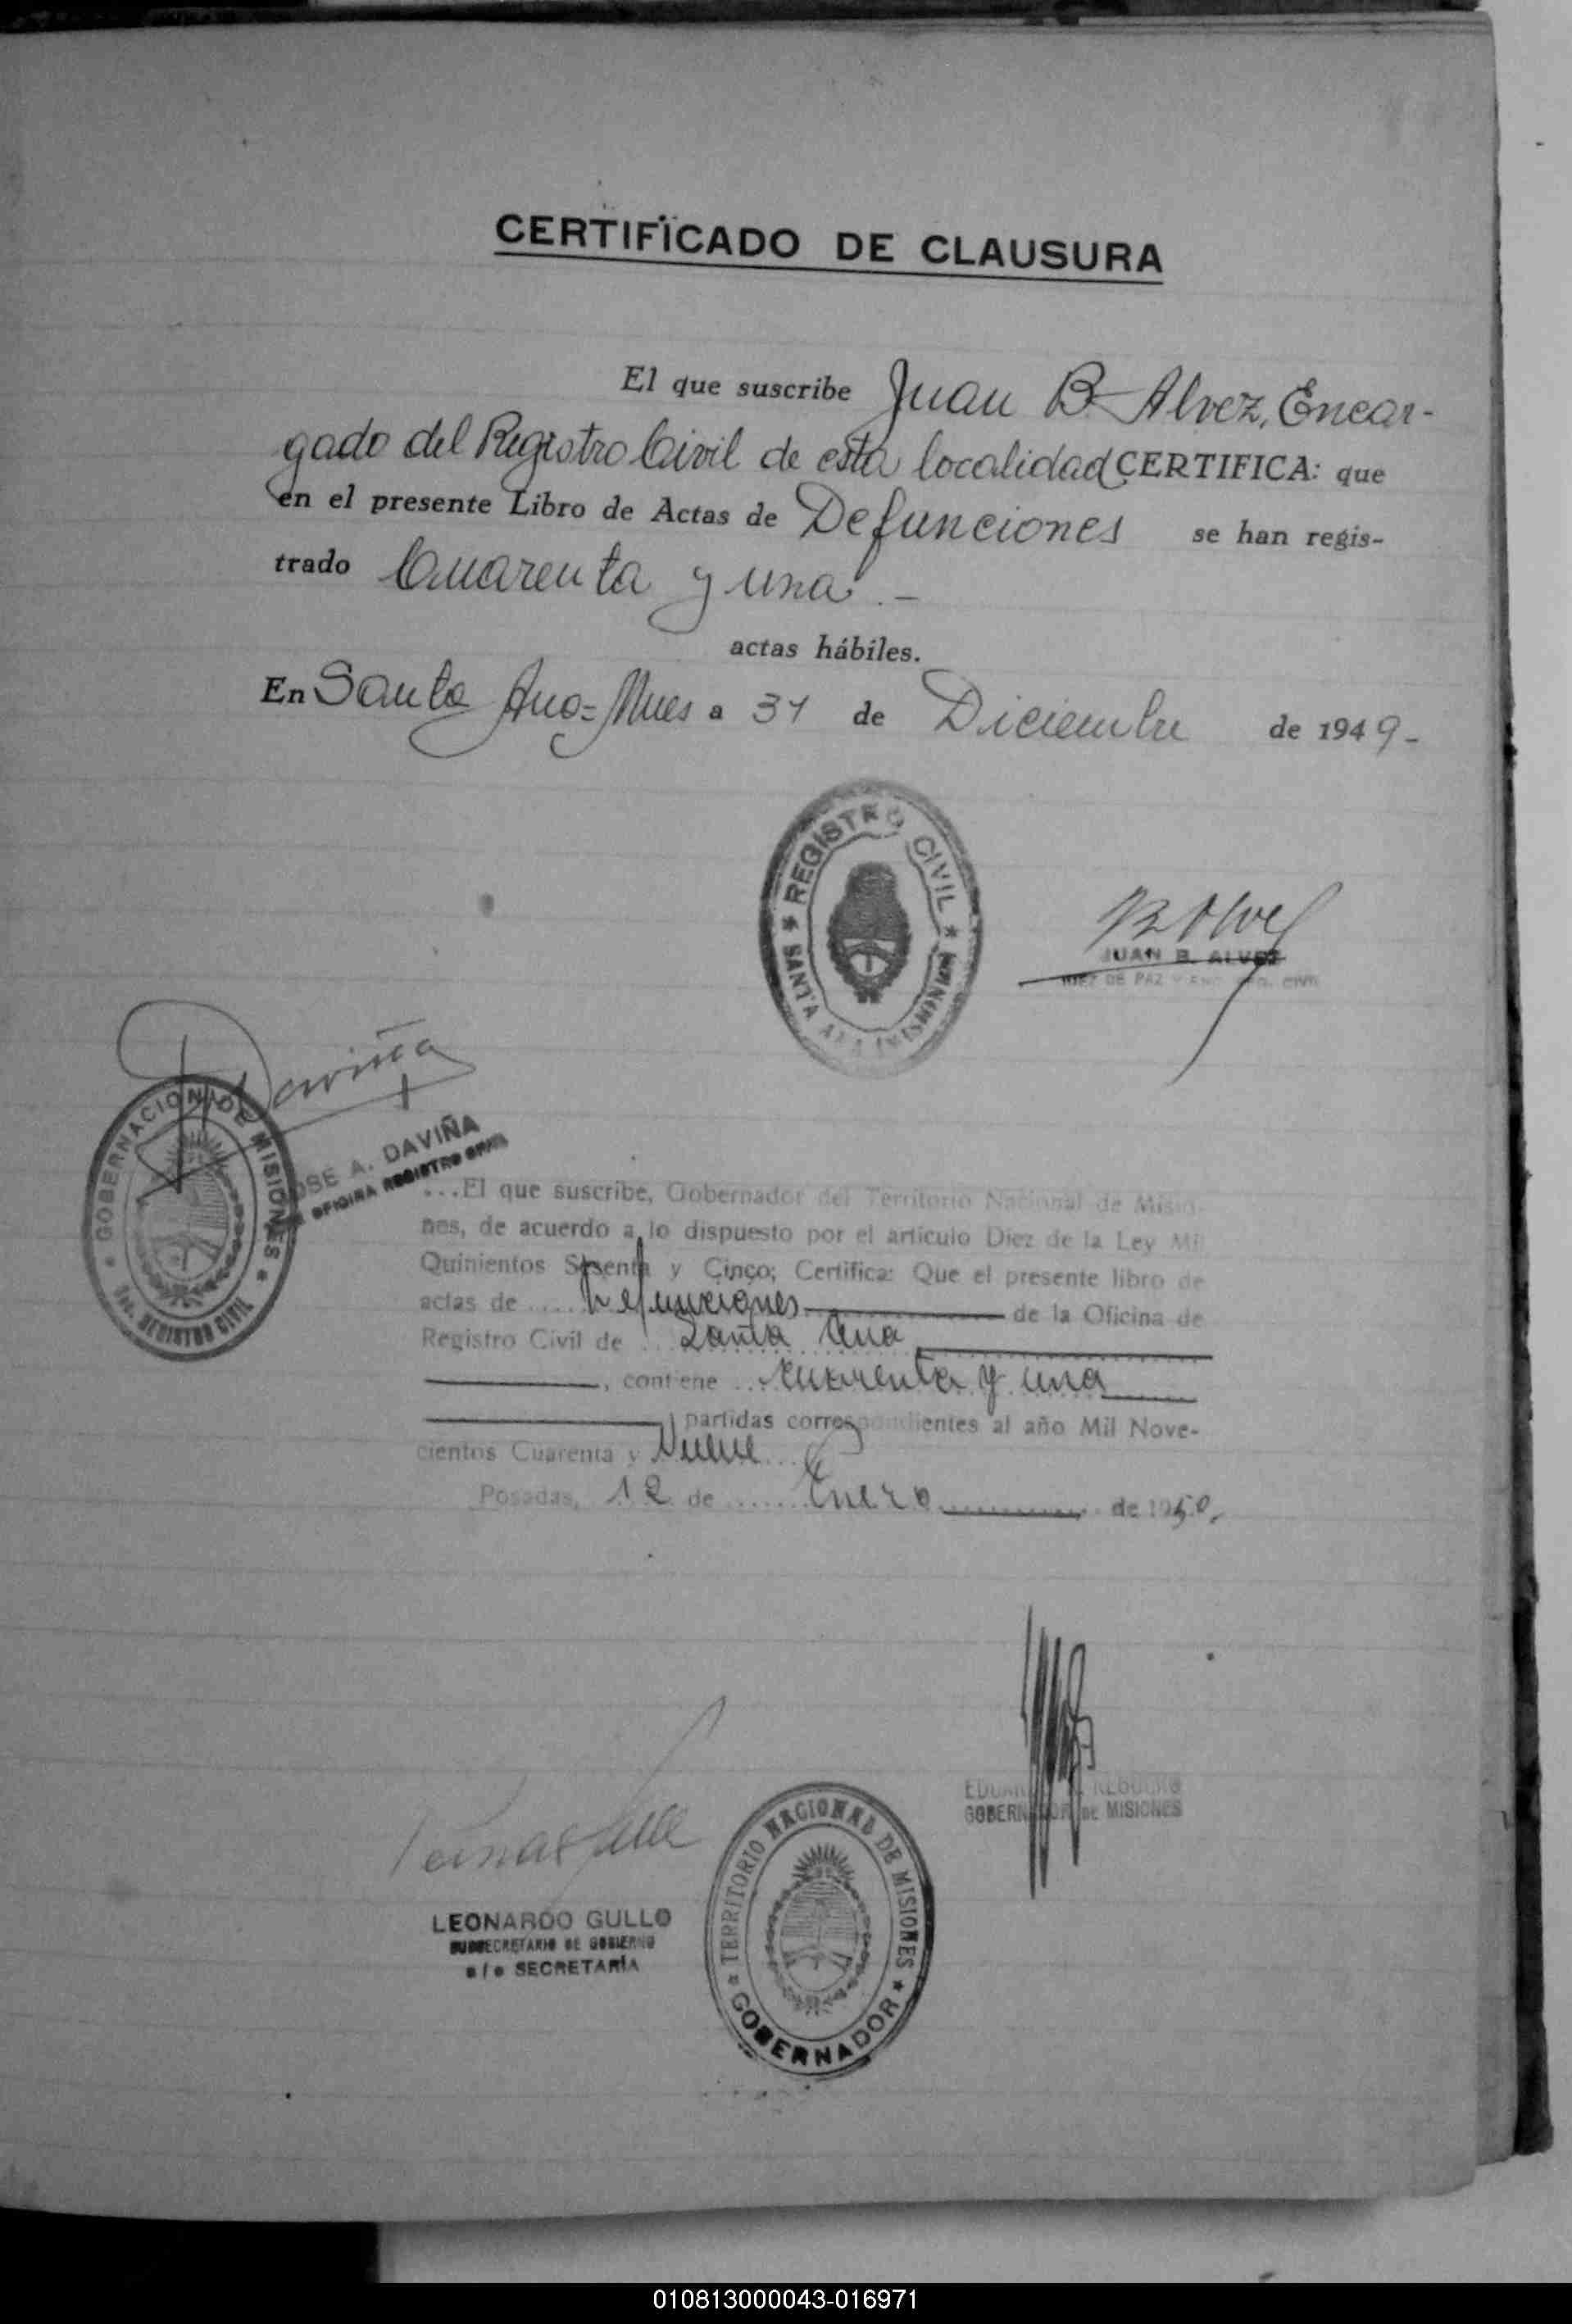 CERTIFICADO DE CLAUSURA
El que suscribe Juan B. Alvez, Encar-
gado del Registro Civil de esta localidad CERTIFICA: que
en el presente Libro de Actas de Defunciones se han regis-
trado Cuarenta y una.-
actas hábiles.
En Santa Ana= Mnes a 31 de Diciembre de 1949-
★ REGISTRO CIVIL ★
SANTA ANA (MISIONES)
JUAN B. ALVEZ
JUEZ DE PAZ Y ENC. REG. CIVIL
Daviña
GOBERNACION DE MISIONES
REGISTRO CIVIL
JOSE A. DAVIÑA
OFICINA REGISTRO CIVIL
...El que suscribe, Gobernador del Territorio Nacional de Misio-
nes, de acuerdo a lo dispuesto por el artículo Diez de la Ley Mil
Quinientos Sesenta y Cinco; Certifica: Que el presente libro de
actas de ..... Defunciones de la Oficina de
Registro Civil de ... Santa Ana
, contiene ... cuarenta y una
partidas correspondientes al año Mil Nove-
cientos Cuarenta y Nueve
Posadas, 12 de ...... Enero de 1950.
GOBERNADOR DE MISIONES
LEONARDO GULLO
SUBSECRETARIO DE GOBIERNO
a/c SECRETARÍA
★ TERRITORIO NACIONAL DE MISIONES ★
GOBERNADOR
010813000043-016971